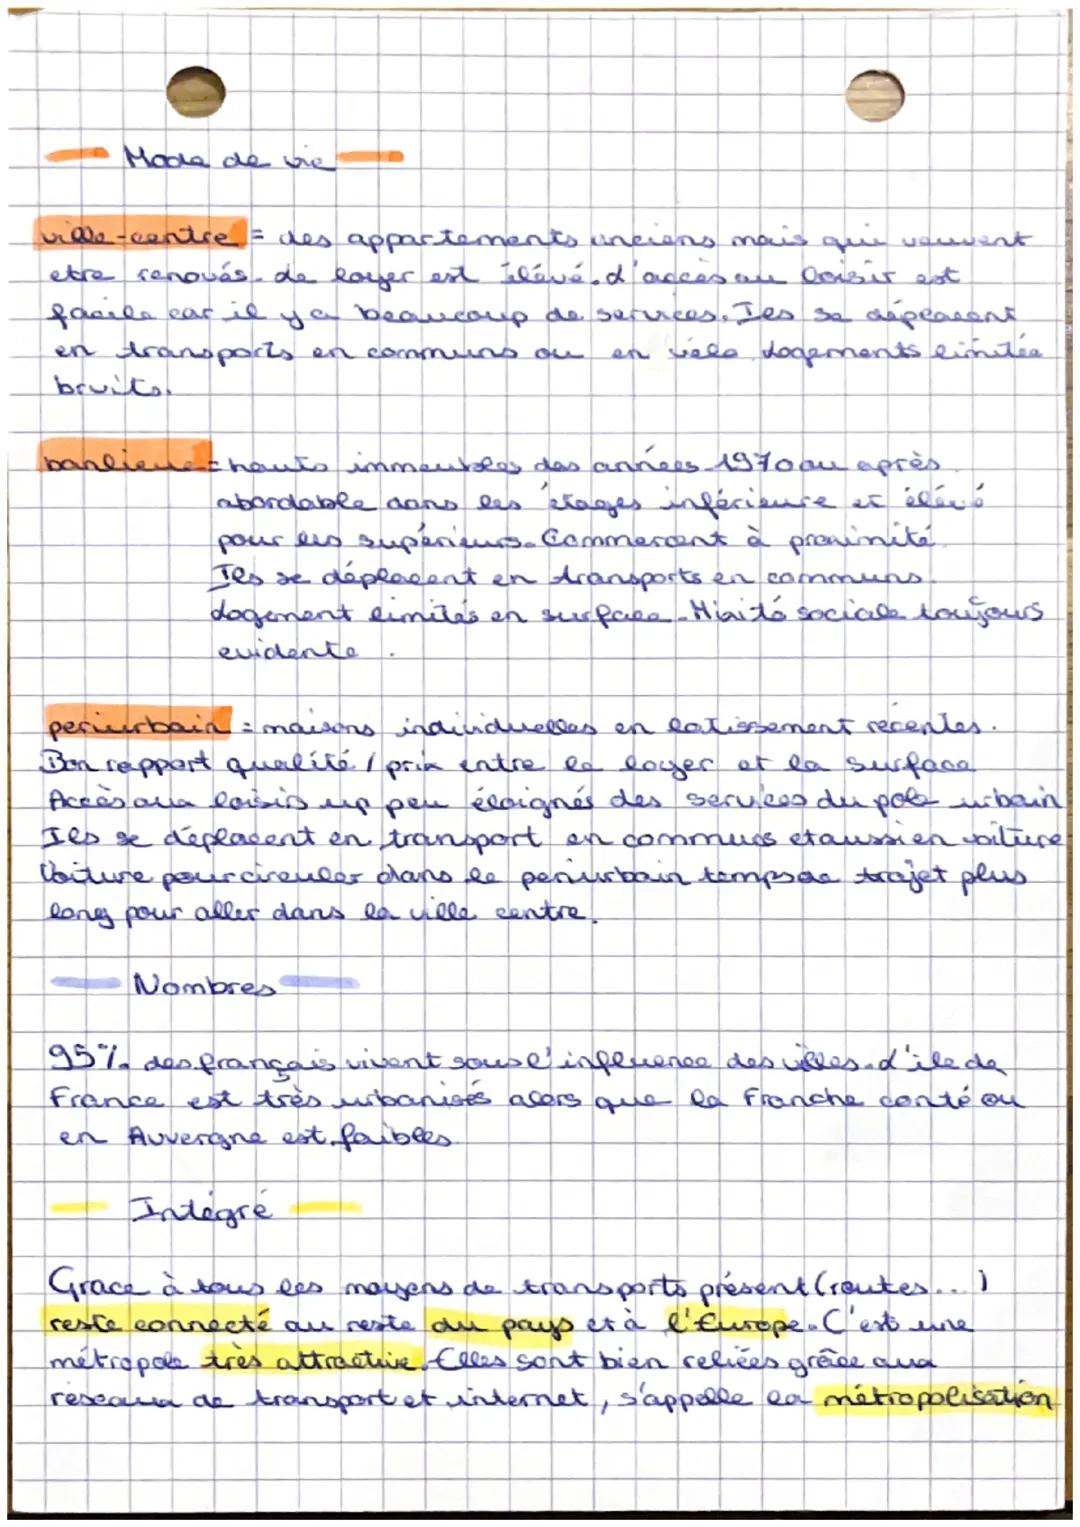 Mode de vie
ville-centre = des appartements anciens mais qui peuvent
etre renovés. Le loyer est élévé. L'accès au loisir est
facile car il y a beaucoup de services. Ils se déplacent
en transports en communs ou en vélo. Logements limitée
bruits.
banlieue = hauts immeubles des années 1970 ou après
abordable dans les étages inférieure et élévé
pour les supérieurs. Commercent à proximité.
Ils se déplacent en transports en communs.
Logement limités en surface. Mixité sociale toujours
evidente.
periurbain = maisons individuelles en lotissement récentes.
Bon rapport qualité / prix entre le loyer et la surface
Accès aux loisirs up peu éloignés des services du pole urbain
Ils se déplacent en transport en communs et aussi en voiture
Voiture pour circuler dans le periurbain temps de trajet plus
long pour aller dans la ville centre.
Nombres
95% des français vivent sous l'influence des villes. L'ile de
France est très urbanisés alors que la Franche conté ou
en Auvergne est faibles
Intégré
Grace à tous les moyens de transports présent (routes...)
reste connecté au reste du pays et à l'Europe. C'est une
métropole très attractive. Elles sont bien reliées grâce aux
réseaux de transport et internet, s'appelle la métropolisation